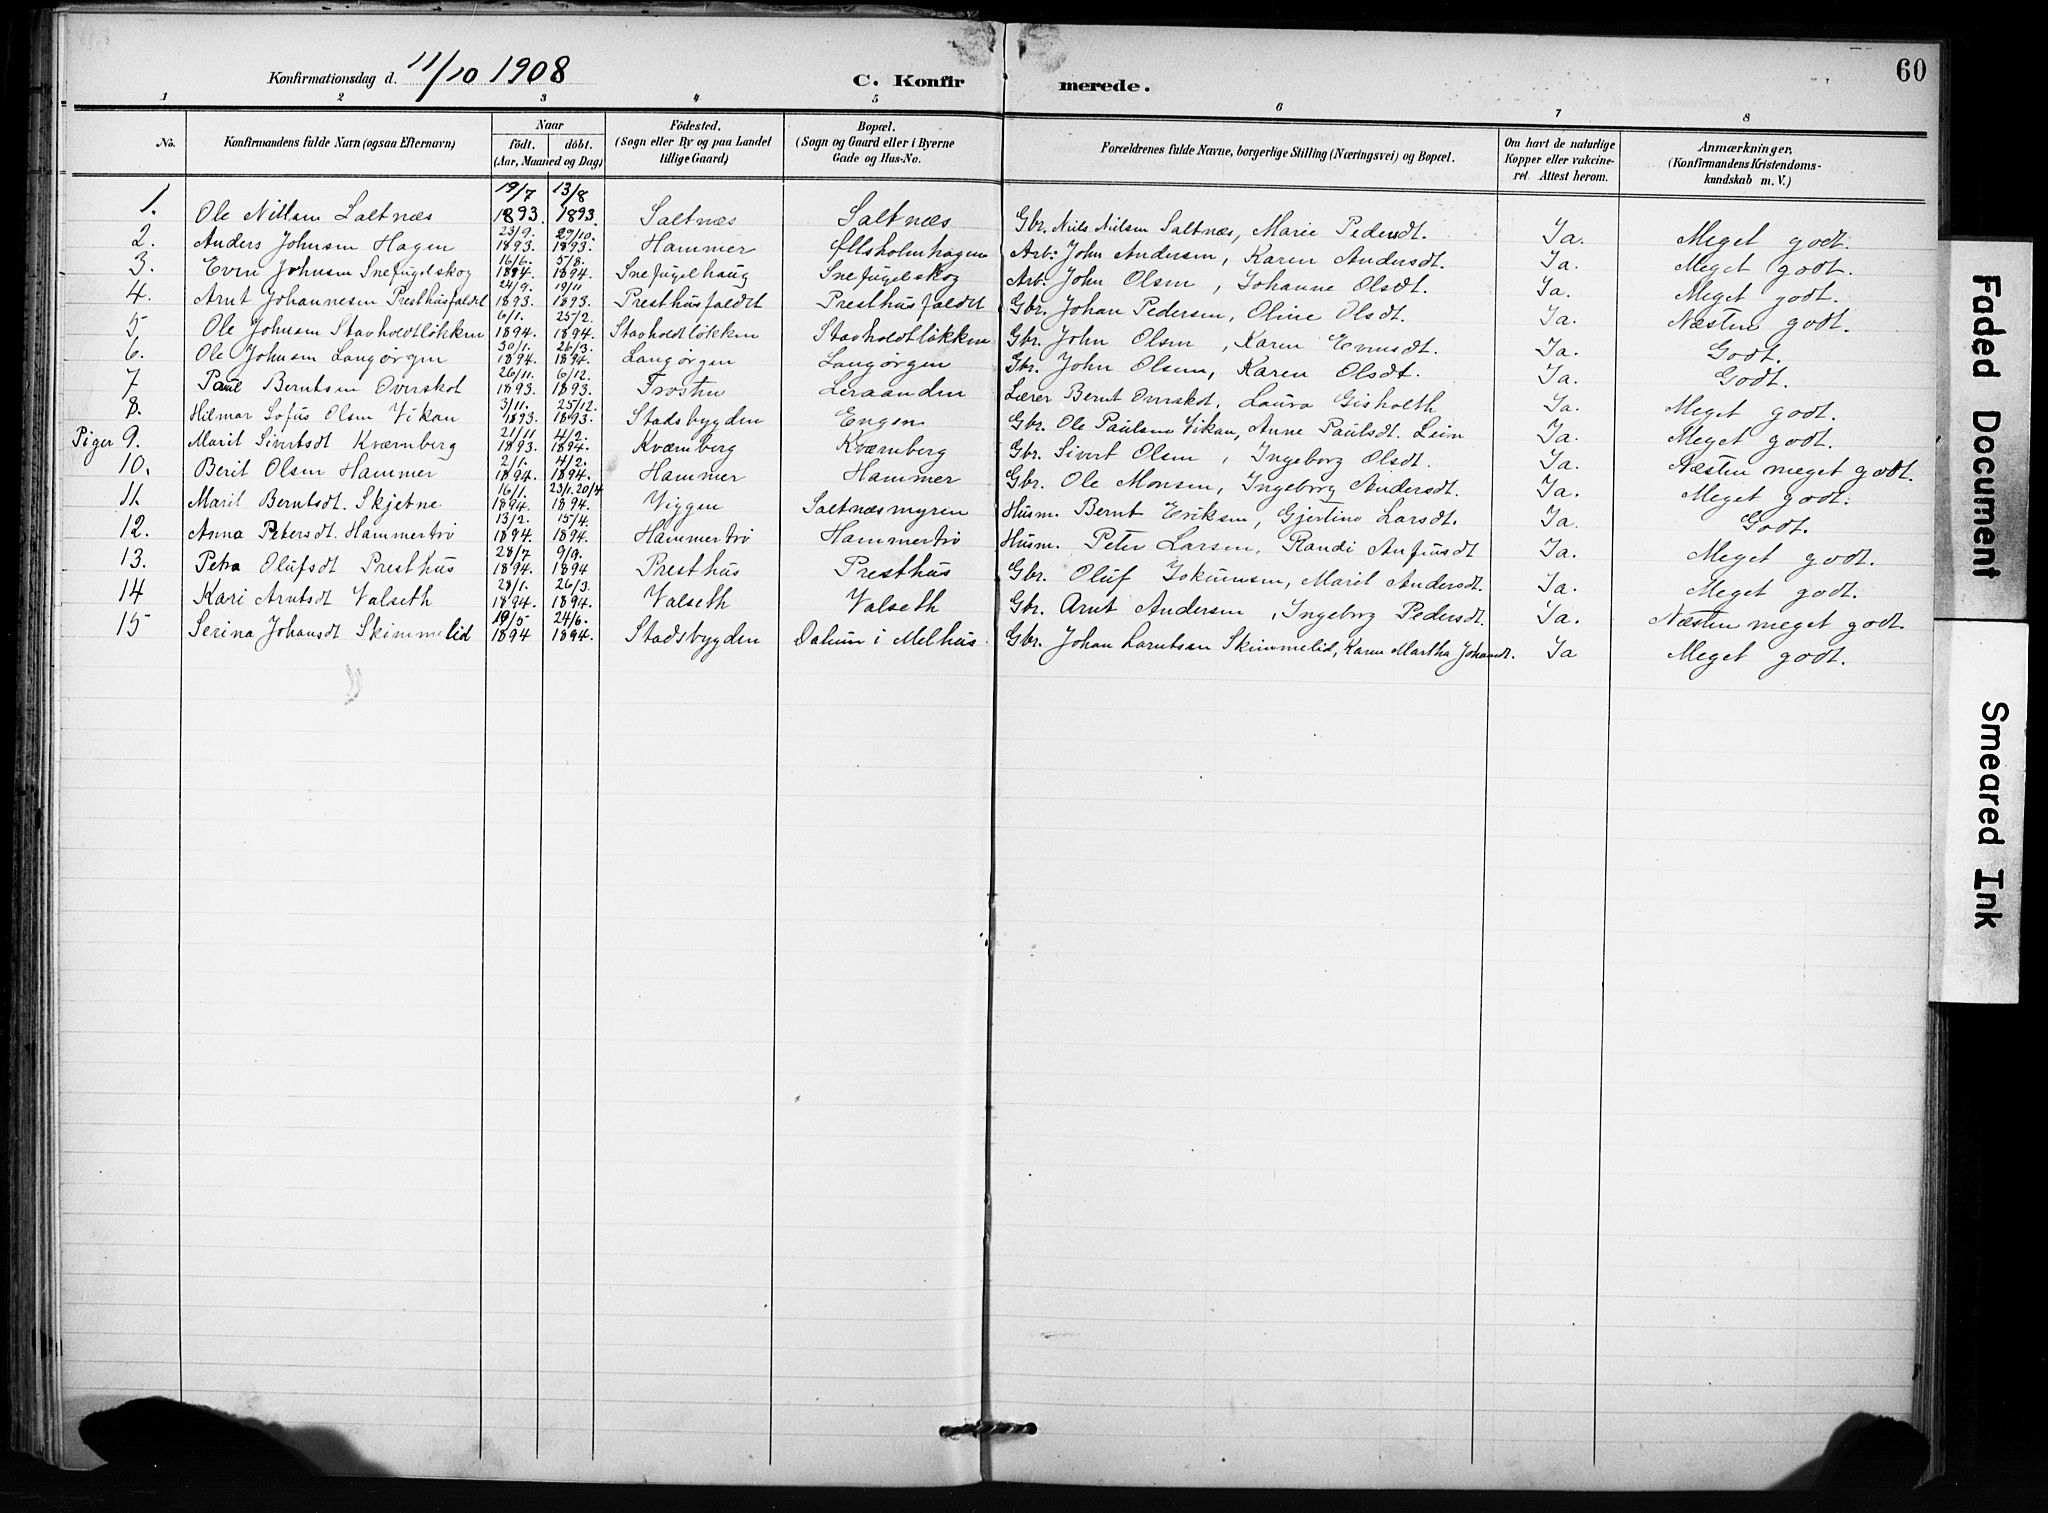 60
Konfirmationsdag d. 11/10 1908
C. Konfirmerede.
1 2 3 4 5 6 7 8
No. Konfirmandens fulde Navn (ogsaa Efternavn) Naar födt. döbt. (Aar, Maaned og Dag) Födested. (Sogn eller By og paa Landet tillige Gaard) Bopæl. (Sogn og Gaard eller i Byerne Gade og Hus-No. Forældrenes fulde Navne, borgerlige Stilling (Næringsvei) og Bopæl. Om havt de naturlige Kopper eller vakcineret. Attest herom. Anmærkninger, (Konfirmandens Kristendomskundskab m. V.)
1. Ole Nillsen Saltnæs 19/7 1893. 13/8 1893. Saltnæs Saltnæs Gbr. Niels Nielsen Saltnæs, Marie Pedersdt. Ja. Meget godt.
2. Anders Johnsen Hagen 23/9. 1893. 29/10. 1893. Hammer Øllsholmhagen Arb: John Andersen, Karen Andersdt. Ja. Meget godt.
3. Even Johnsen Snefugelskog 16/6. 1894. 5/8. 1894. Snefugelhaug Snefugelskog Arb. John Olsen, Johanne Olsdt. Ja. Meget godt.
4. Arnt Johannesen Presthusfaldt 24/9. 1893. 19/11 1893. Presthusfaldt Presthusfaldt Gbr. Johan Pedersen, Oline Olsdt. Ja. Næsten godt.
5 Ole Johnsen Stavholdtløkken 6/1. 1894. 25/2. 1894. Stavholdtløkken Stavholdtløkken Gbr. John Olsen, Karen Evensdt. Ja. Godt.
6. Ole Johnsen Langørgen 30/1. 1894. 26/3. 1894. Langørgen Langørgen Gbr. John Olsen, Karen Olsdt. Ja. Godt.
7 Paul Berntsen Overskot 26/11. 1893. 6/12. 1893. Trosten Leraanden Lærer Bernt Overskot, Laura Gisholth Ja. Meget godt.
8. Hilmar Sofus Olsen Vikan 3/11. 1893. 25/12. 1893. Stadsbygden Engen Gbr. Ole Paulsen Vikan, Anne Paulsdt. Lein Ja. Meget godt.
Piger 9. Marit Sivertsdt Kværnberg 21/11 1893. 4/2. 1894. Kværnberg Kværnberg Gbr. Sivert Olsen, Ingeborg Olsdt. Ja. Næsten meget godt.
10. Berit Olsen Hammer 2/1. 1894. 4/2. 1894. Hammer Hammer Gbr. Ole Monsen, Ingeborg Andersdt. Ja. Meget godt.
11. Marit Berntsdt. Skjetne 16/1. 1894. 23/1. 20/4 1894. Viggen Saltnæsmyren Husm. Bernt Eriksen, Gjertine Larsdt. Ja. Godt.
12. Anna Petersdt. Hammertrö 13/2. 1894. 15/4. 1894. Hammertrö Hammertrö Husm. Peter Larsen, Randi Anfinsdt Ja. Meget godt.
13. Petra Olufsdt Presthus 28/7 1894. 9/9. 1894 Presthus Presthus Gbr. Oluf Jokumsen, Marit Andersdt. Ja. Meget godt.
14 Kari Arntsdt Valseth 28/1. 1894. 26/3. 1894. Valseth Valseth Gbr. Arnt Andersen, Ingeborg Pedersdt. Ja. Næsten meget godt.
15 Serina Johansdt Skimmelid 19/5 1894 24/6. 1894. Stadsbygden Dalum i Melhus. Gbr. Johan Larntsen Skimmelid, Karen Martha Johansdt. Ja Meget godt.
Faded Document
Smeared Ink